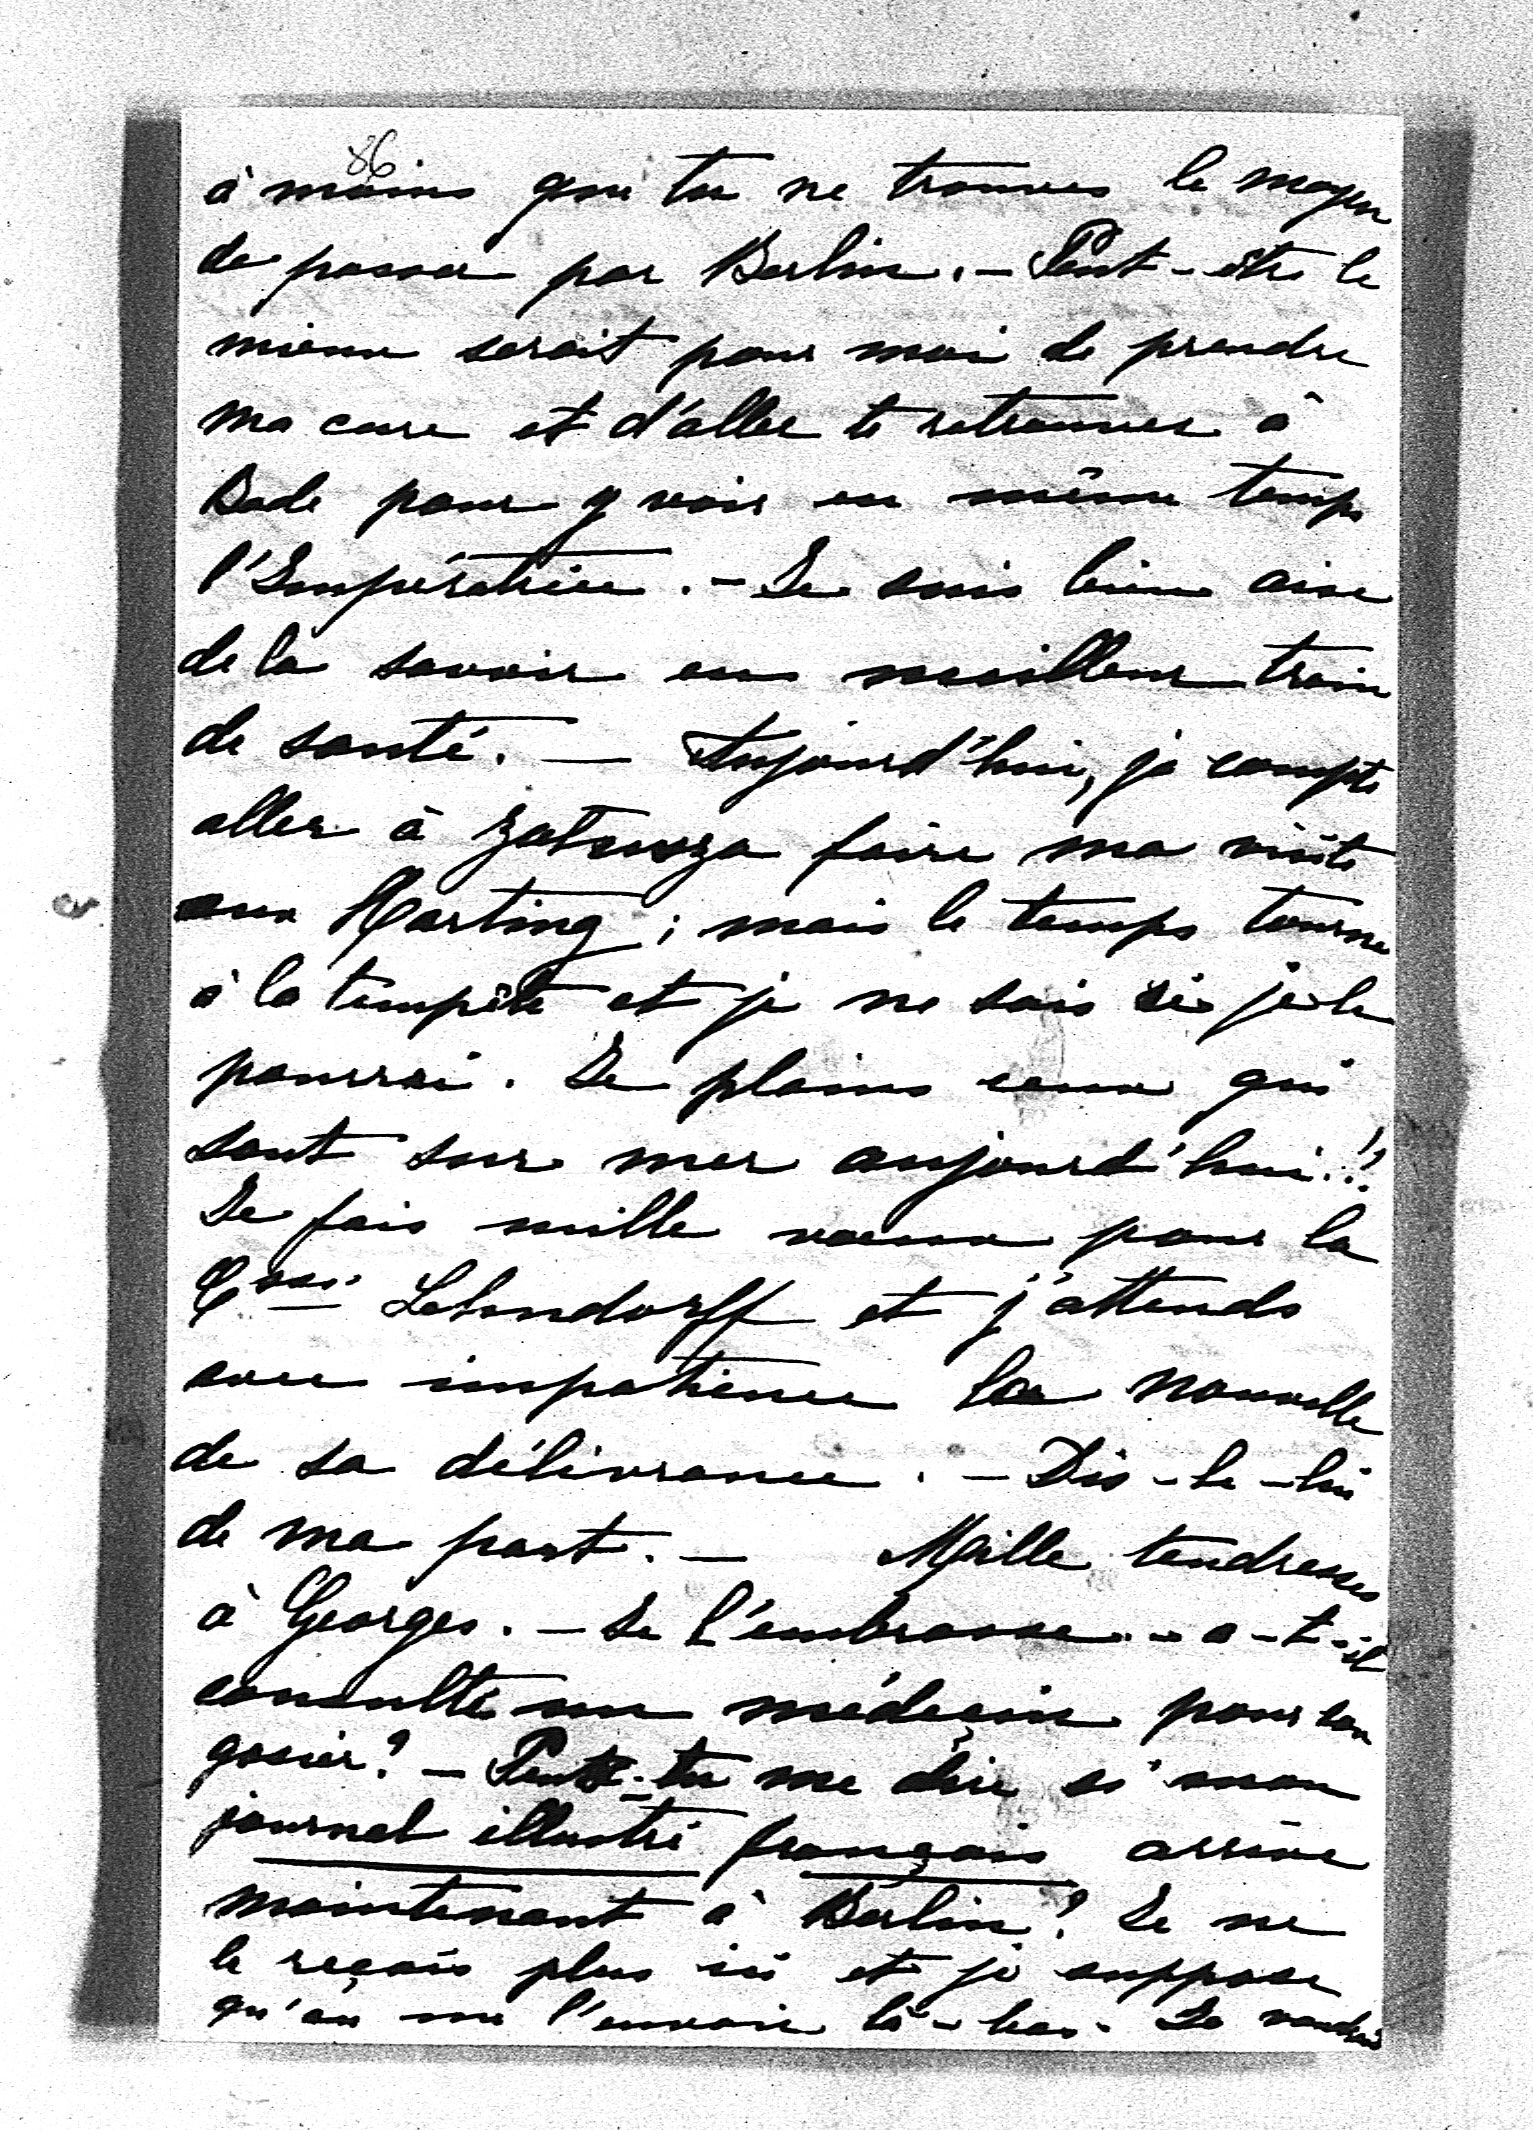 86
à moins que tu ne trouves le moyen
de passer par Berlin. — Peut-être le
mieux serait pour moi de prendre
ma cure et d'aller te retrouver à
Bade pour y voir en même temps
l'Impératrice. — Je suis bien aise
de la savoir en meilleur train
de santé. — Aujourd'hui, je compte
aller à faire ma visite
aux Harting ; mais le temps tourne
à la tempête et je ne sais si je le
pourrai. Je plains ceux qui
sont sur mer aujourd'hui !!
Je fais mille vœux pour la
Ctesse Lehndorff et j'attends
avec impatience la nouvelle
de sa délivrance. — Dis-le-lui
de ma part. — Mille tendresses
à Georges. — Je l'embrasse. — a-t-il
consulté un médeçin pour son
gosier ? — Peux-tu me dire si mon
journal illustré français arrive
maintenant à Berlin ? Je ne
le reçois plus ici et je suppose
qu'on me l'envoie là-bas. Je voudrais